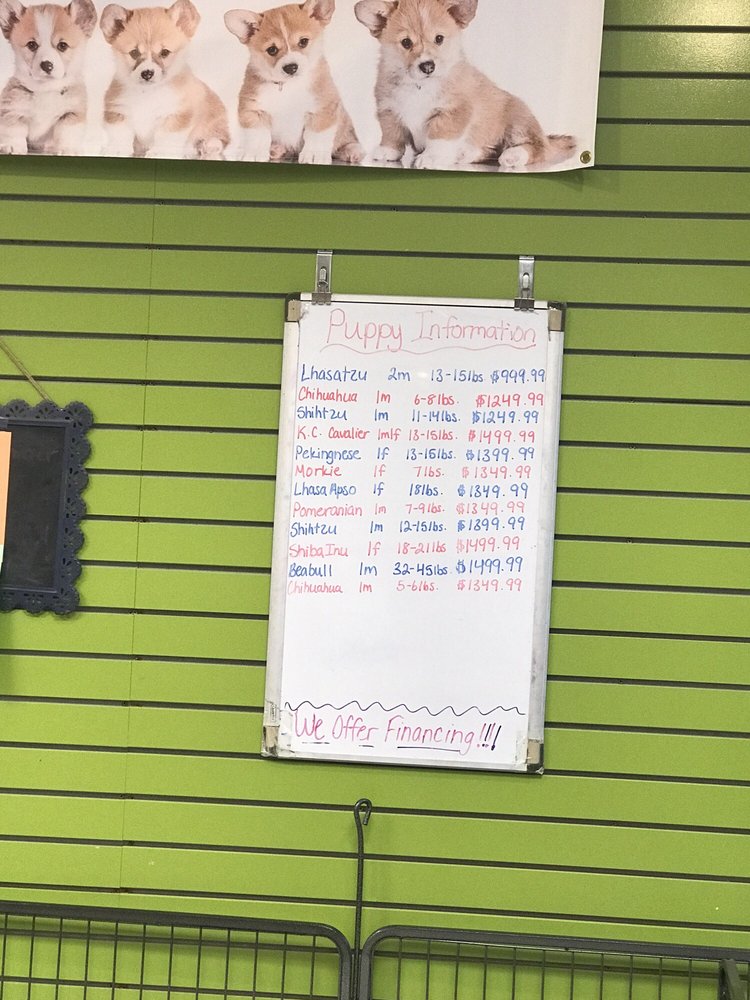 Puppy Information
Lhasatzu 2m 13-15lbs $999.99
Chihuahua 1m 6-8lbs. $1249.99
Shihtzu 1m 11-14lbs. $1249.99
K.C. Cavalier 1m1f 13-15lbs. $1499.99
Pekingnese 1f 13-15lbs. $1399.99
Morkie 1f 7lbs. $1349.99
Lhasa Apso 1f 18lbs. $1349.99
Pomeranian 1m 7-9lbs. $1349.99
Shihtzu 1m 12-15lbs. $1399.99
Shiba Inu 1f 18-21lbs $1499.99
Beabull 1m 32-45lbs. $1499.99
Chihuahua 1m 5-6lbs. $1349.99
We Offer Financing!!!